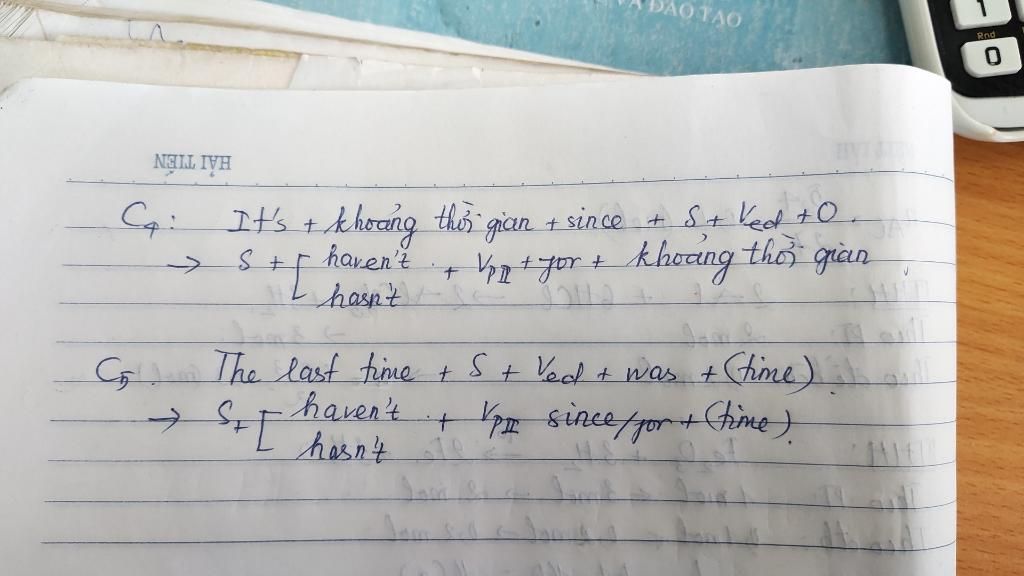 VÀ ĐÀO TẠO
1
Rnd
0
HẢI TIẾN
C4: It's + khoảng thời gian + since + S + Ved + O.
→ S + [ haven't + VpII + for + khoảng thời gian
hasn't
C5. The last time + S + Ved + was + (time)
→ S + [ haven't + VpII since/for + (time).
hasn't